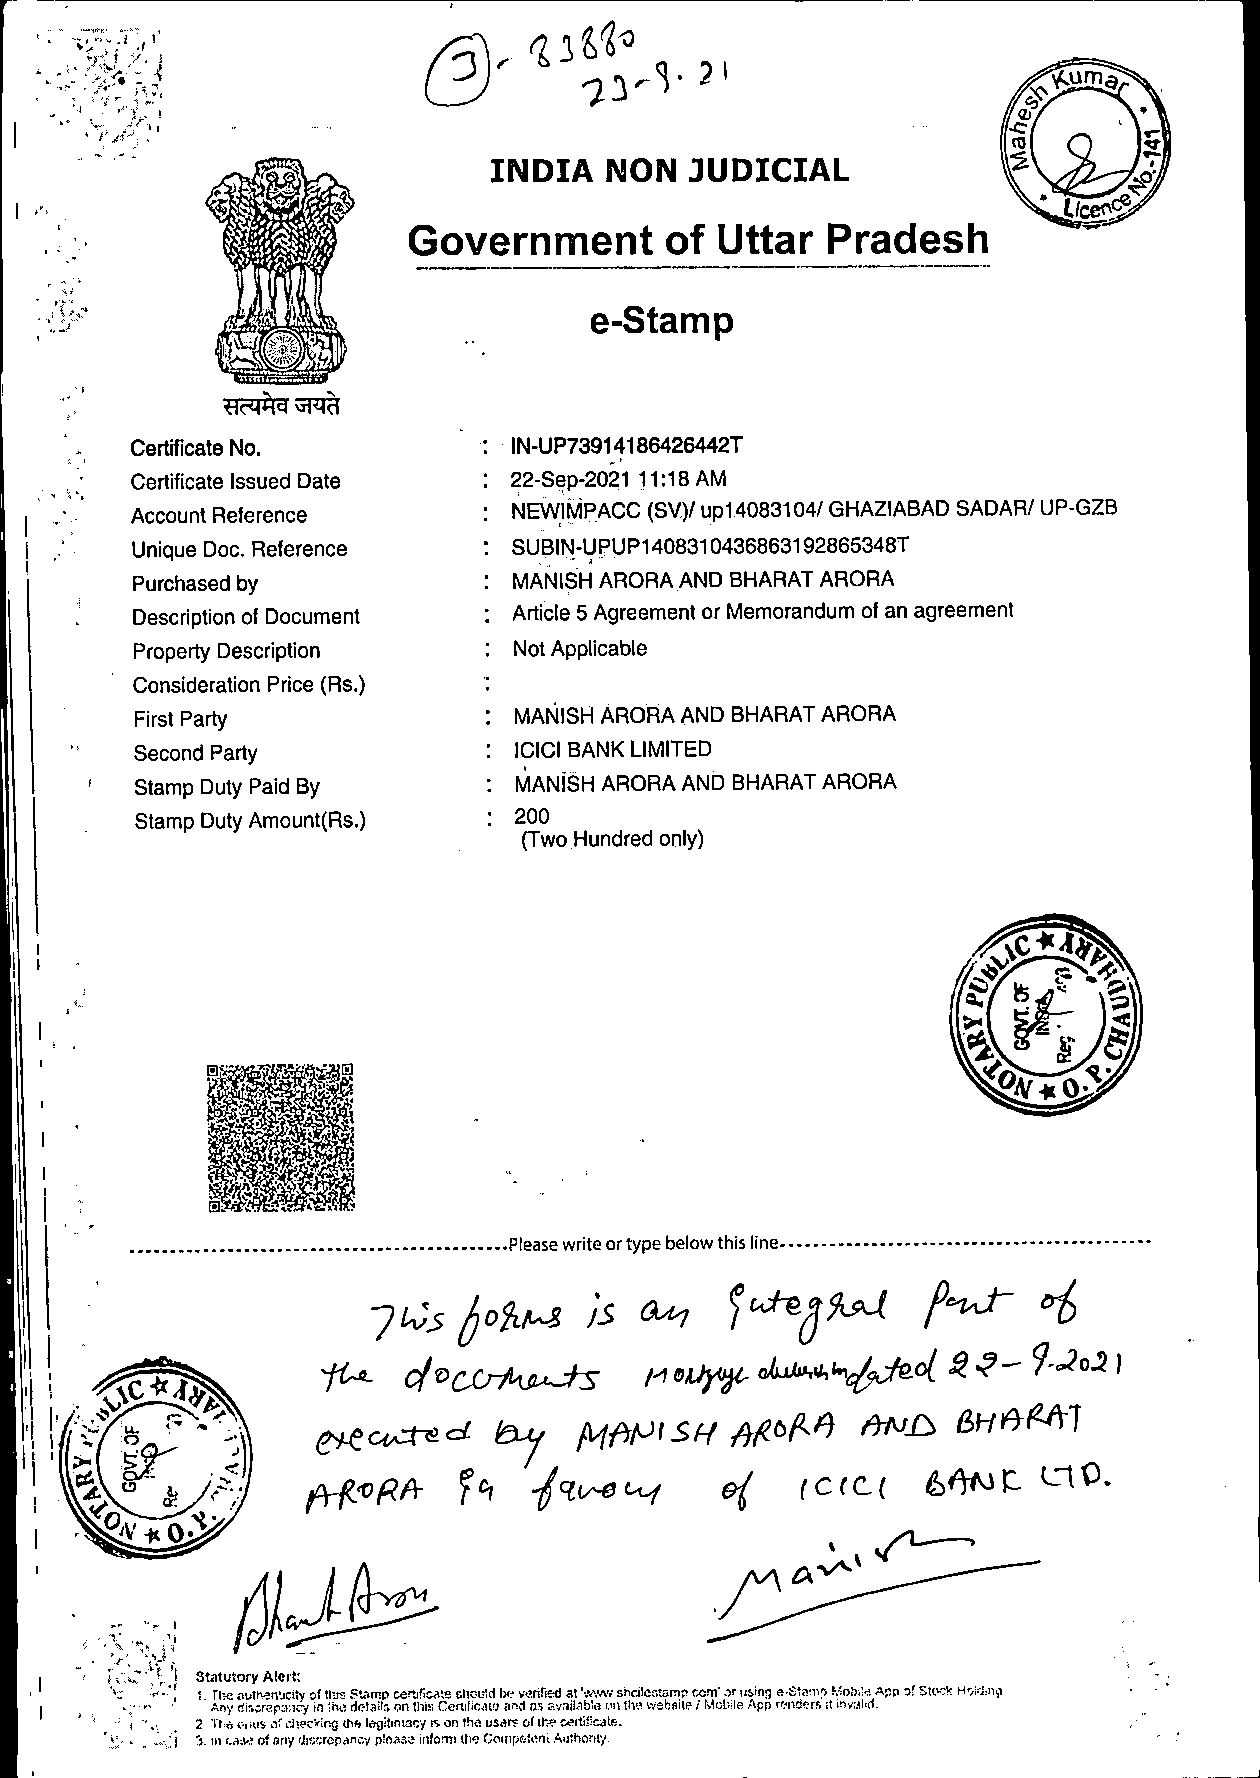 3 - 83880
23-9-21
Mahesh Kumar
Licence No.-141
INDIA NON JUDICIAL
Government of Uttar Pradesh
e-Stamp
सत्यमेव जयते
Certificate No. : IN-UP73914186426442T
Certificate Issued Date : 22-Sep-2021 11:18 AM
Account Reference : NEWIMPACC (SV)/ up14083104/ GHAZIABAD SADAR/ UP-GZB
Unique Doc. Reference : SUBIN-UPUP1408310436863192865348T
Purchased by : MANISH ARORA AND BHARAT ARORA
Description of Document : Article 5 Agreement or Memorandum of an agreement
Property Description : Not Applicable
Consideration Price (Rs.) :
First Party : MANISH ARORA AND BHARAT ARORA
Second Party : ICICI BANK LIMITED
Stamp Duty Paid By : MANISH ARORA AND BHARAT ARORA
Stamp Duty Amount(Rs.) : 200
(Two Hundred only)
NOTARY PUBLIC ★ O. P. CHAUDHARY ★
GOVT. OF
INDIA
Reg
Please write or type below this line
This forms is an integral Part of
the documents Mortgage dated 22-9-2021
executed by MANISH ARORA AND BHARAT
ARORA in favour of ICICI BANK LTD.
NOTARY PUBLIC ★ O. P.
GOVT. OF
Bharat Arora
Manish
Statutory Alert:
1. The authenticity of this Stamp certificate should be verified at 'www.shcilestamp.com' or using e-Stamp Mobile App of Stock Holding
Any discrepancy in the details on this Certificate and as available on the website / Mobile App renders it invalid.
2. The onus of checking the legitimacy is on the users of the certificate.
3. In case of any discrepancy please inform the Competent Authority.